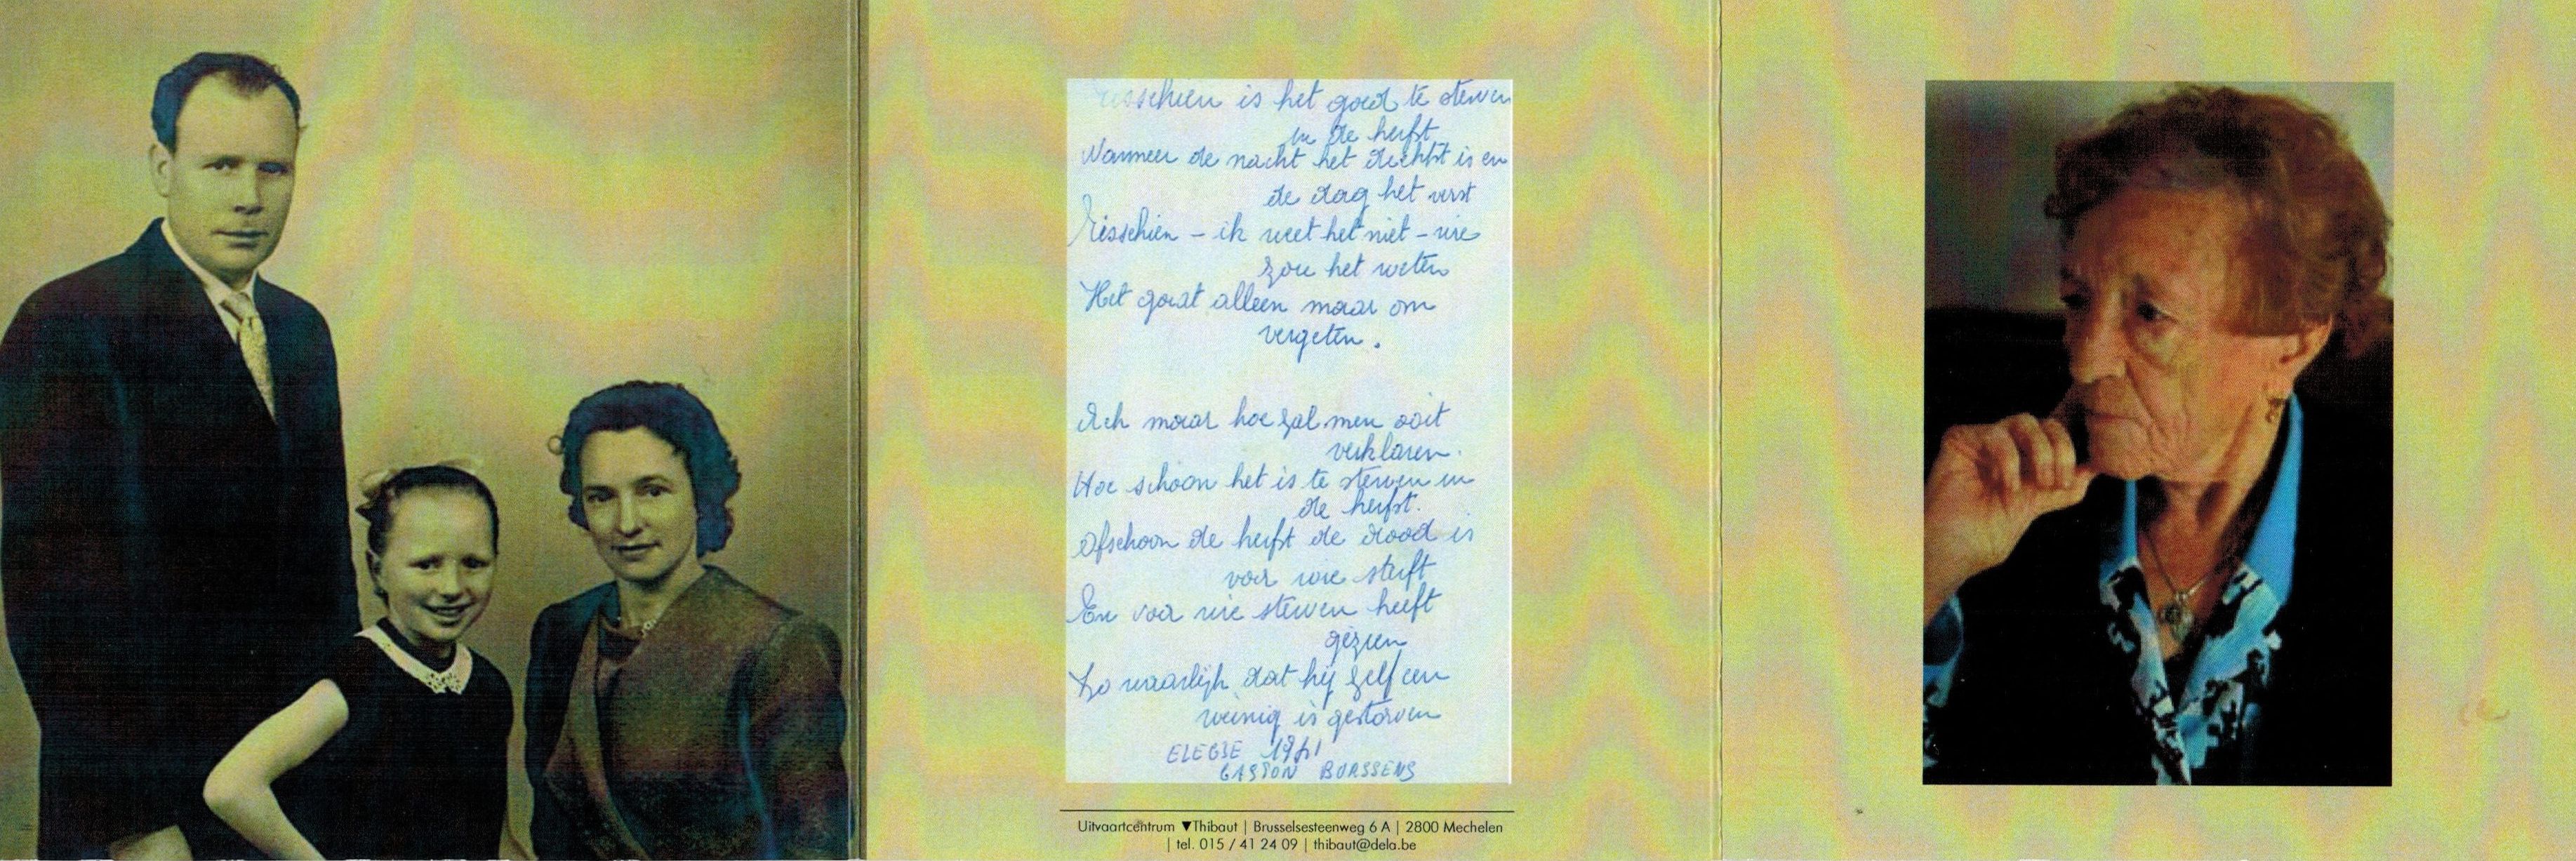 Misschien is het goed te sterven
in de herfst
Wanneer de nacht het dichtst is en
de dag het verst
Misschien – ik weet het niet – wie
zou het weten
Het gaat alleen maar om
vergeten.
Ach maar hoe zal men ooit
verklaren.
Hoe schoon het is te sterven in
de herfst.
Ofschoon de herfst de dood is
voor wie sterft
En voor wie sterven heeft
gezien
Zo waarlijk dat hij zelf een
weinig is gestorven
ELEGIE
GASTON BURSSENS
Uitvaartcentrum ▼Thibaut | Brusselsesteenweg 6 A | 2800 Mechelen
| tel. 015 / 41 24 09 | thibaut@dela.be